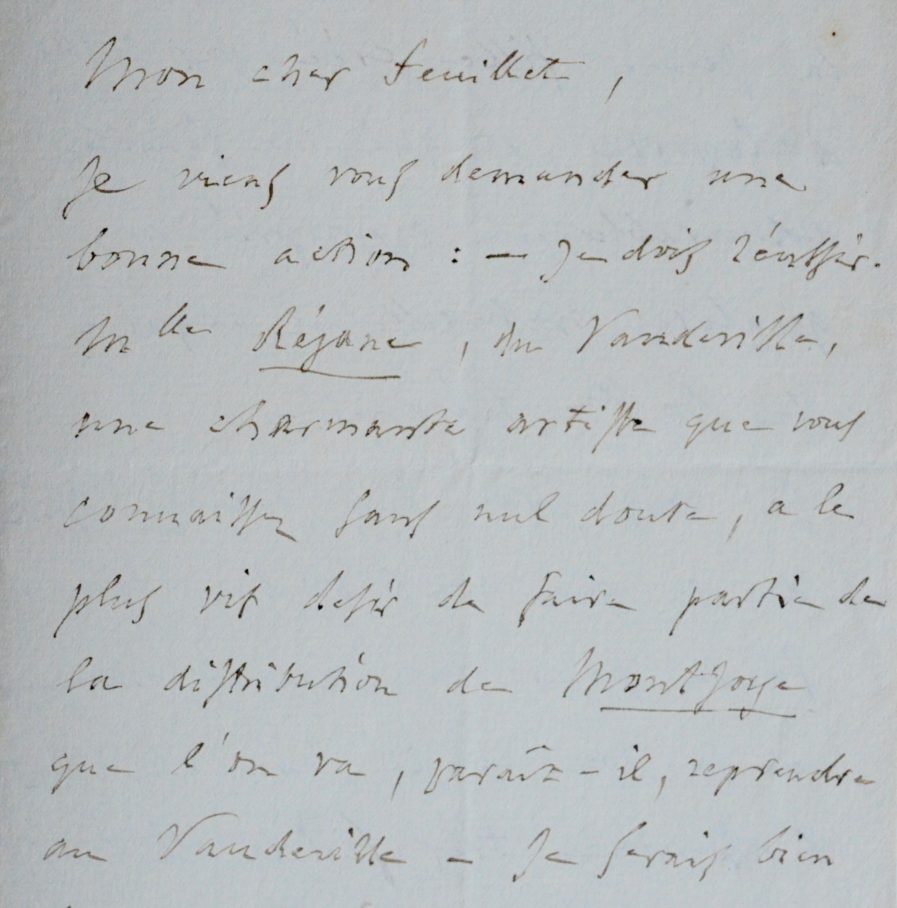 Mon cher Feuillet,
Je viens vous demander une
bonne action : – Je dois réussir.
Mlle Réjane, du Vaudeville,
une charmante artiste que vous
connaissez sans nul doute, a le
plus vif désir de faire partie de
la distribution de Montjoye
que l'on va, paraît-il, reprendre
au Vaudeville – Je serais bien